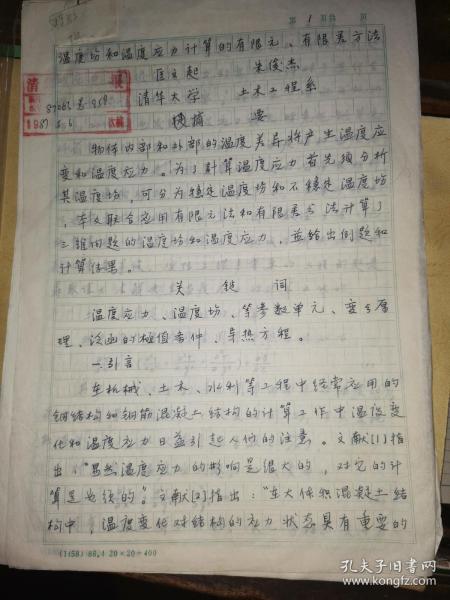 第 1 页共 页
温度场和温度应力计算的有限元、有限差方法
匡文起 朱俊杰
清华大学 土木工程系
1987
收稿
摘 要
物体内部和外部的温度差异将产生温度应
变和温度应力。为了计算温度应力首先须分析
其温度场,可分为稳定温度场和不稳定温度场
,本文联合应用有限元法和有限差方法计算了
三维问题的温度场和温度应力,并给出例题和
计算结果。
关 键 词
温度应力、温度场、等参数单元、变分原
理、泛函的极值条件、导热方程。
一、引言
在机械、土木、水利等工程中经常应用的
钢结构和钢筋混凝土结构的计算工作中温度变
化和温度应力日益引起人们的注意。文献[1]指
出:“显然温度应力的影响是很大的,对它的计
算是必须的”。文献[2]指出:“在大体积混凝土结
构中,温度变化对结构的应力状态具有重要的
(1158) 86.4 20×20=400
孔夫子旧书网
www.kongfz.com